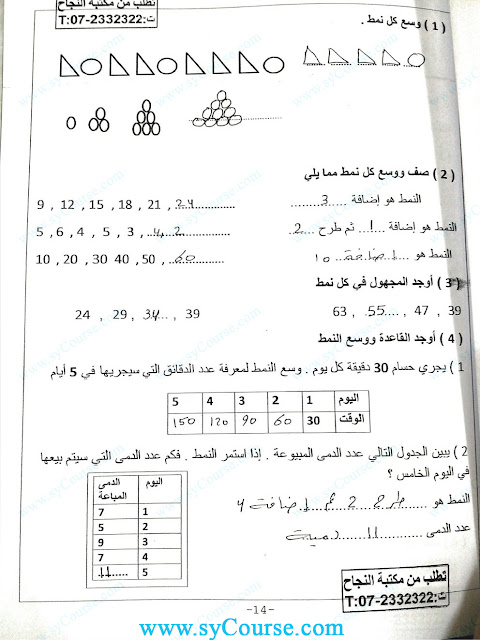 تطلب من مكتبة النجاح
ت:07-2332322:T
( 1 ) وسع كل نمط .
( 2 ) صف ووسع كل نمط مما يلي
النمط هو إضافة ....3.... 9 , 12 , 15 , 18 , 21 , 24
النمط هو إضافة ...1... ثم طرح ...2 5 , 6 , 4 , 5 , 3 , 4, 2
النمط هو ...إضافة 10 10 , 20 , 30 40 , 50 , 60
( 3 ) أوجد المجهول في كل نمط
63 , 55 , 47 , 39 24 , 29 , 34 , 39
( 4 ) أوجد القاعدة ووسع النمط
1 ) يجري حسام 30 دقيقة كل يوم . وسع النمط لمعرفة عدد الدقائق التي سيجريها في 5 أيام
اليوم 1 2 3 4 5
الوقت 30 60 90 120 150
2 ) يبين الجدول التالي عدد الدمى المبيوعة . إذا استمر النمط . فكم عدد الدمى التي سيتم بيعها
في اليوم الخامس ؟
النمط هو ...طرح 2 ثم إضافة 4
عدد الدمى ...11 دمية
اليوم الدمى المباعة
1 7
2 5
3 9
4 7
5 11
تطلب من مكتبة النجاح
ت:07-2332322:T
-14-
www.syCourse.com